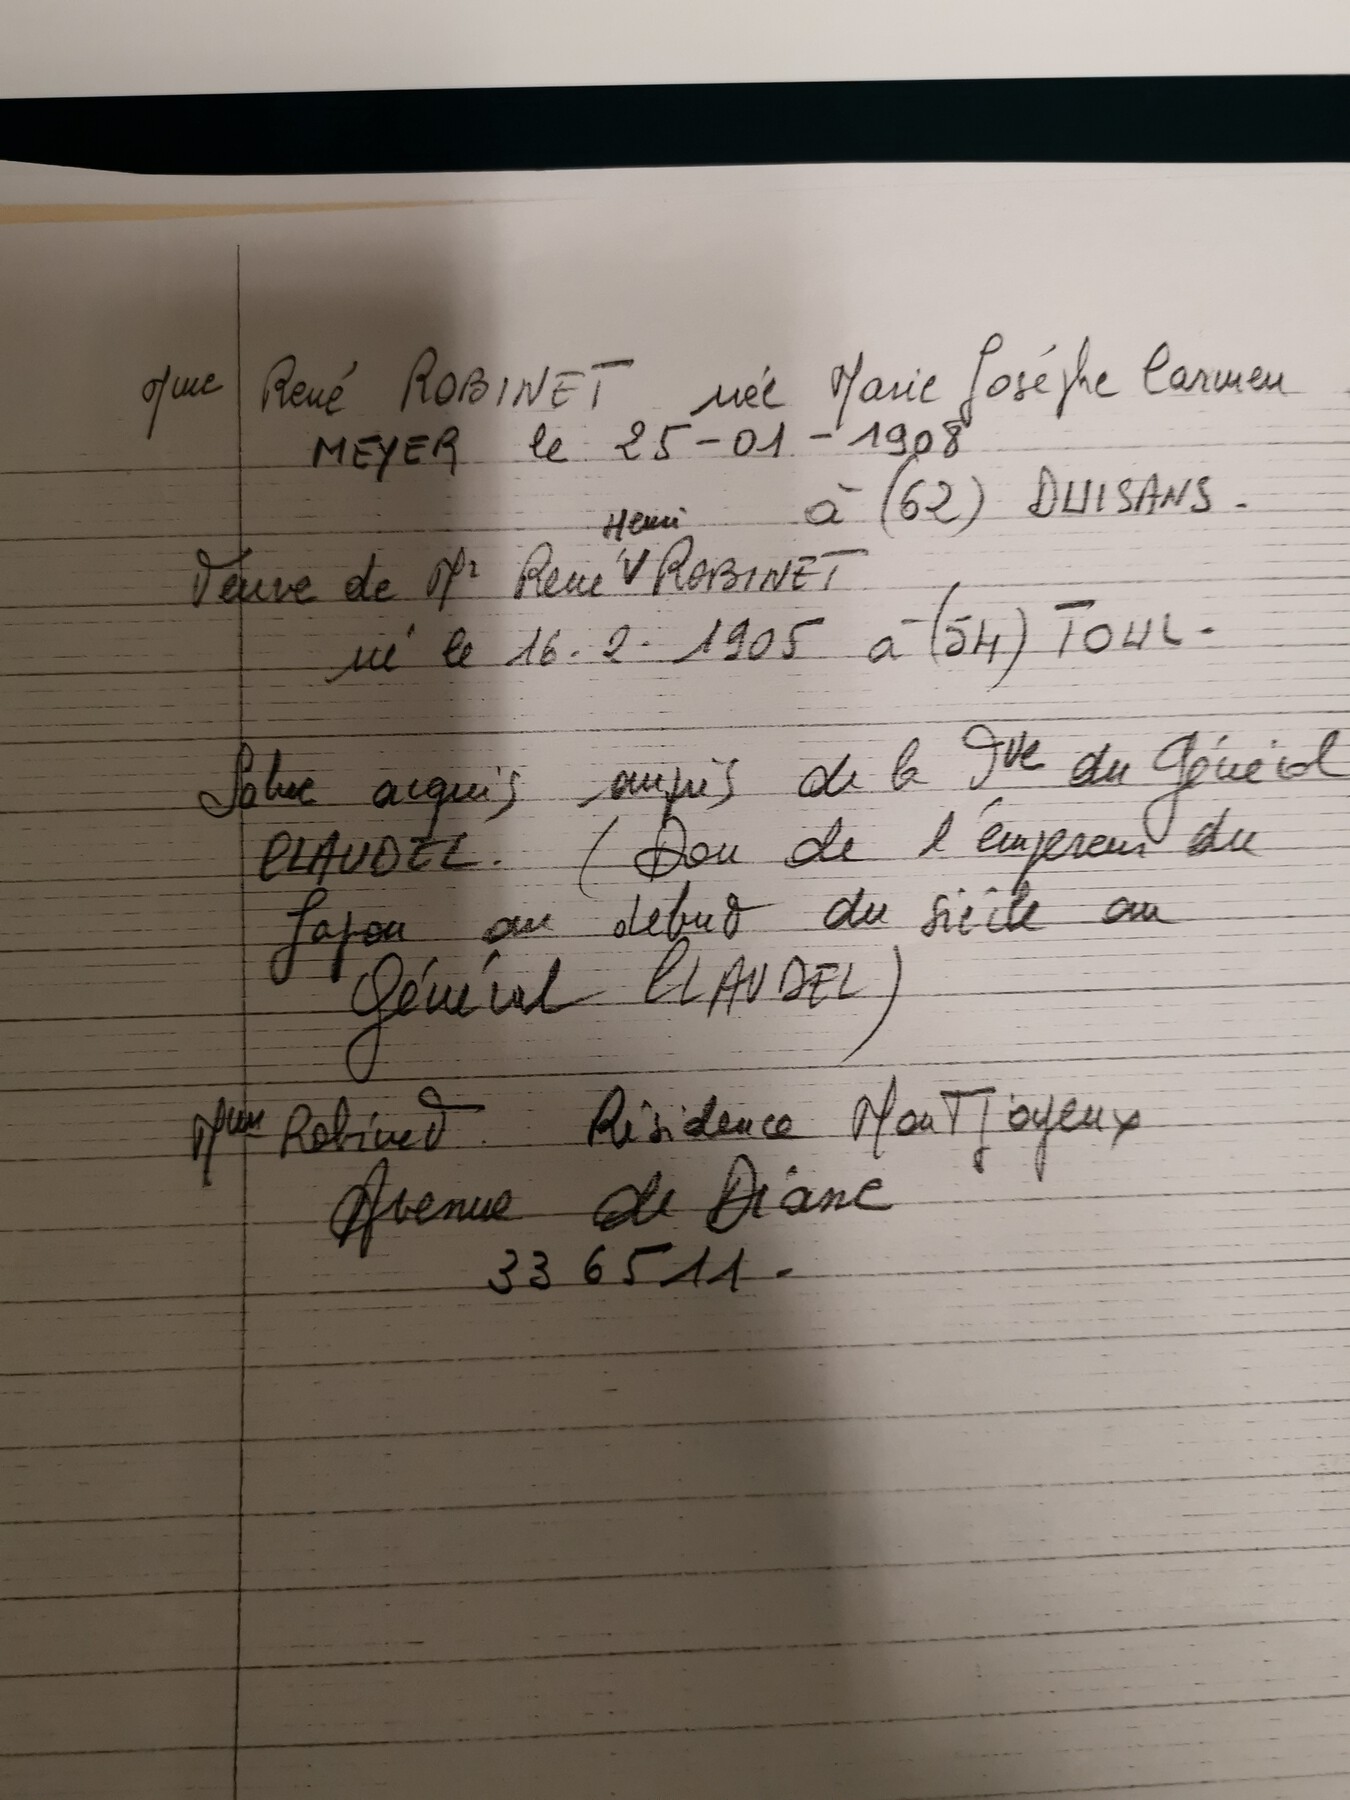 Mme René ROBINET née Marie Joséphe Carmen
MEYER le 25-01-1908
à (62) DUISANS.
Henri
Veuve de Mr René ROBINET
né le 16.2.1905 à (54) TOUL.
Sabre acquis auprès de la Vve du Général
CLAUDEL. (Don de l'empereur du
Japon au début du siècle au
Général CLAUDEL)
Mme Robinet. Résidence MonTjoyeux
Avenue de Diane
33 65 11.